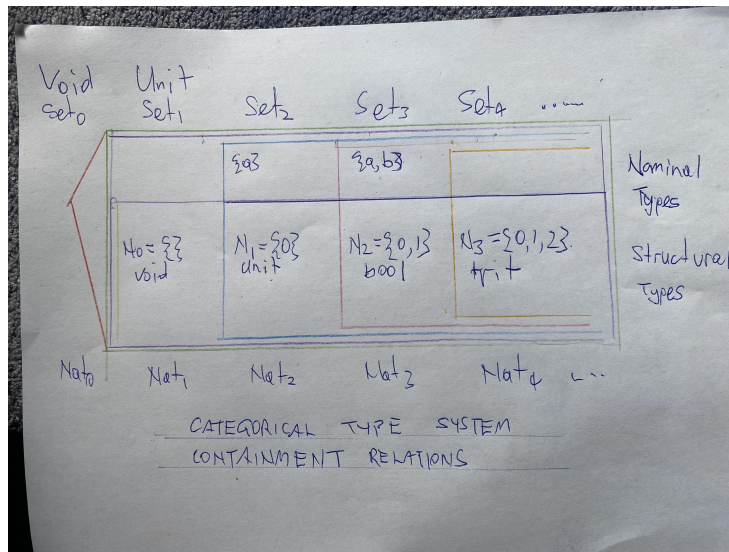 Void Unit
Set₀ Set₁ Set₂ Set₃ Set₄ .....
{a} {a,b}
Nominal
Types
N₀ = {} N₁ = {0} N₂ = {0,1} N₃ = {0,1,2}
void unit bool trit
Structural
Types
Nat₀ Nat₁ Nat₂ Nat₃ Nat₄ ...
CATEGORICAL TYPE SYSTEM
CONTAINMENT RELATIONS